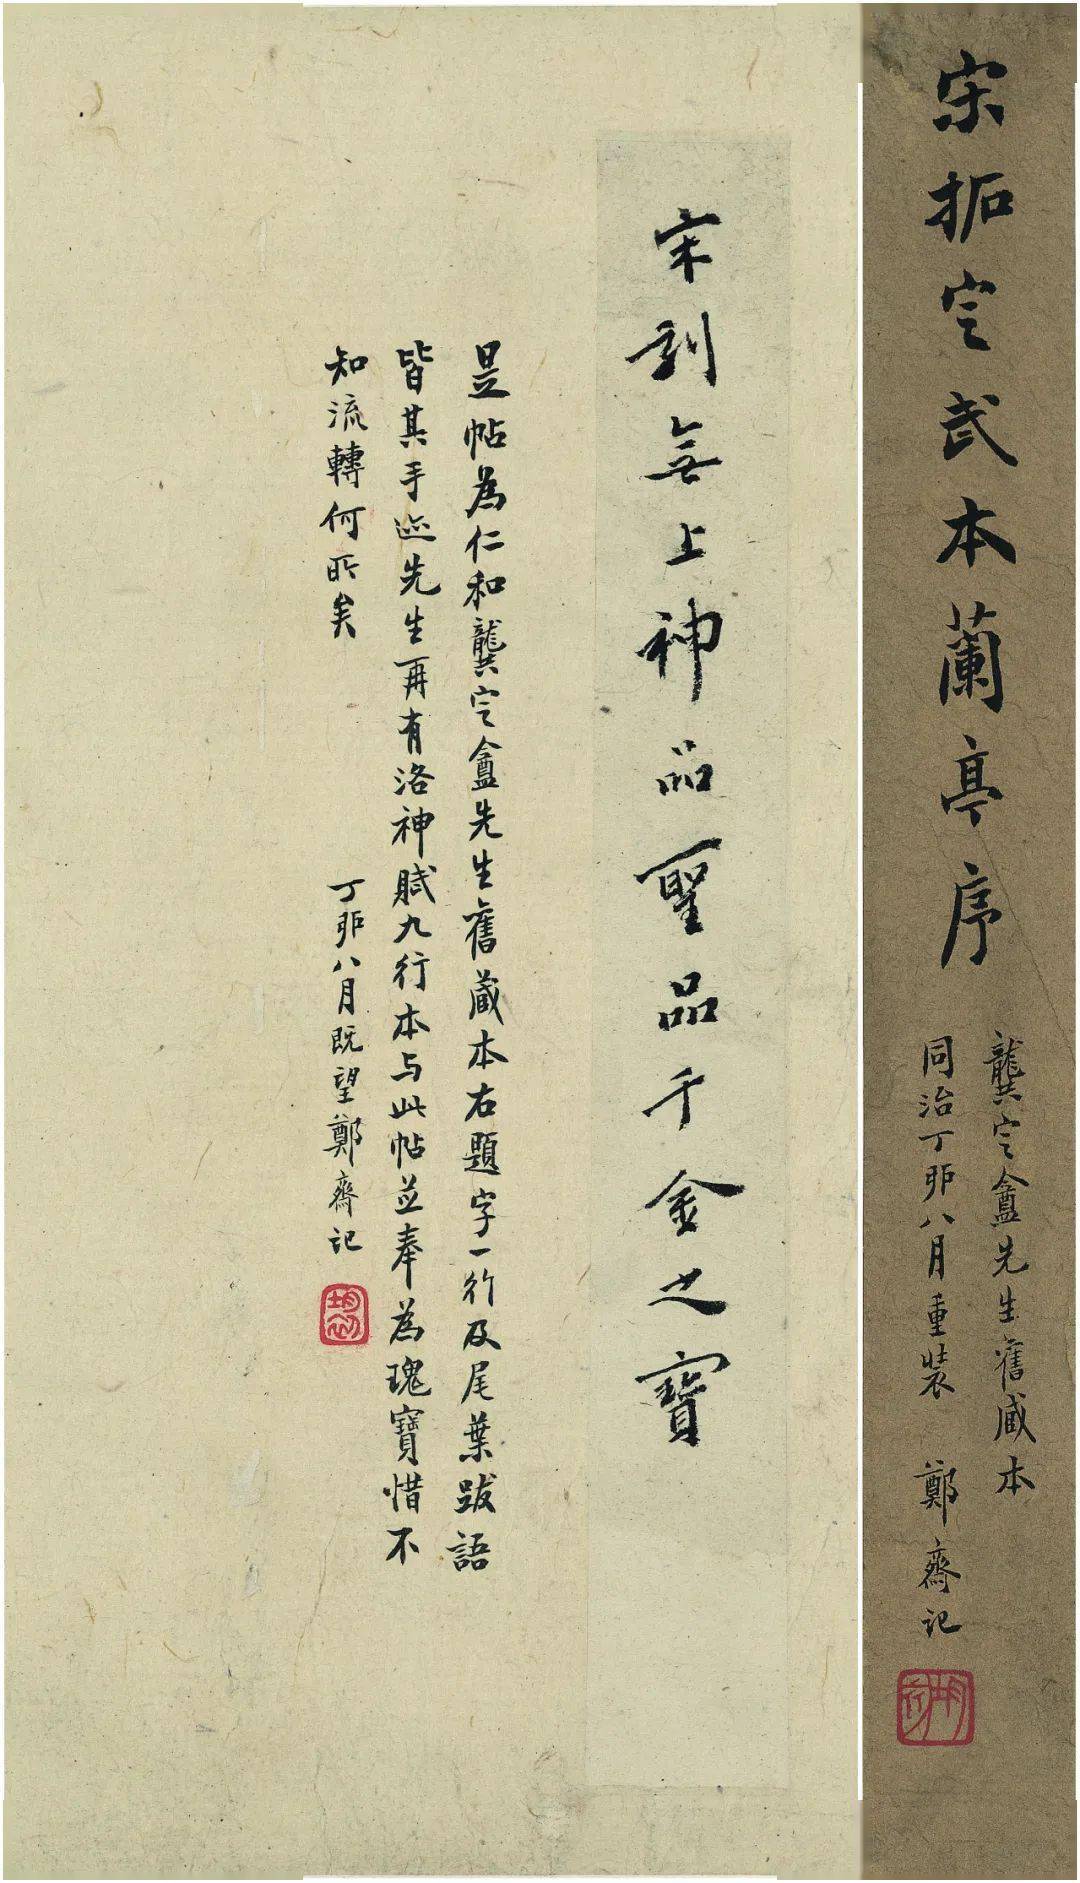 宋拓定武本蘭亭序
龔定盦先生舊藏本
同治丁卯八月重裝 鄭齋記
宋刻無上神品聖品千金之寶
是帖為仁和龔定盦先生舊藏本右題字一行及尾葉跋語
皆其手迹先生再有洛神賦九行本与此帖並奉為瑰寶惜不
知流轉何所矣
丁卯八月既望鄭齋記